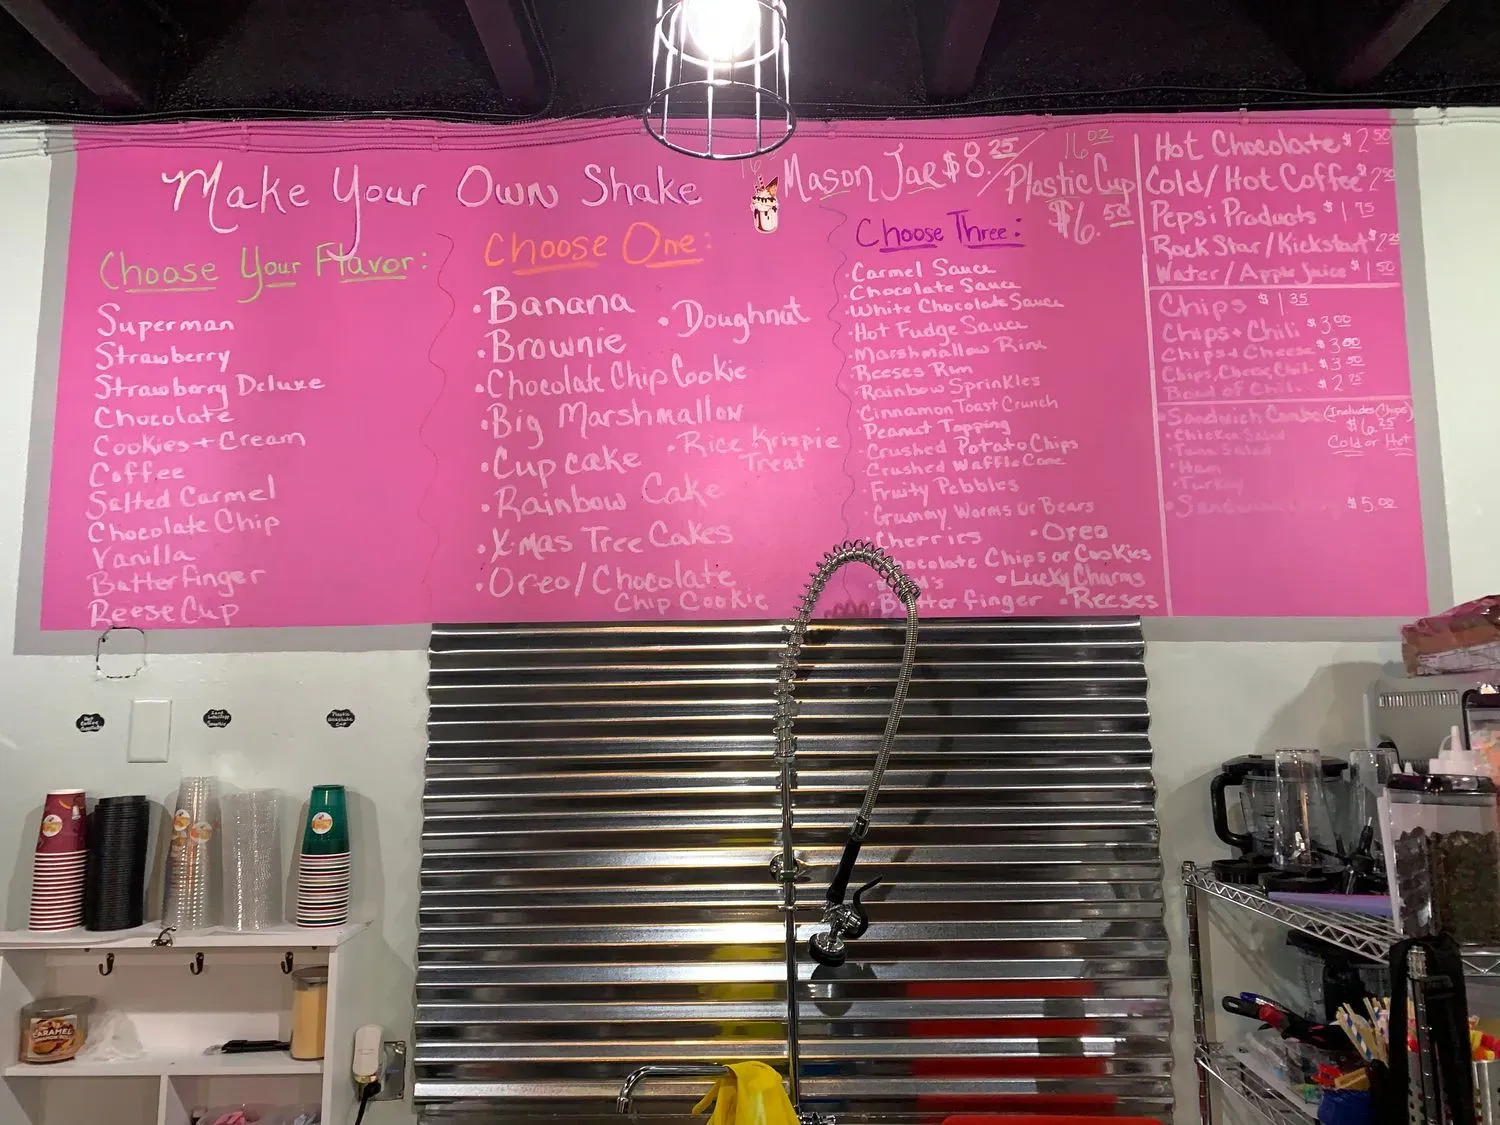 Make Your Own Shake
16
Mason Jar $8.25/
16oz
Plastic Cup
$6.50
Choose Your Flavor:
Superman
Strawberry
Strawberry Deluxe
Chocolate
Cookies + Cream
Coffee
Salted Carmel
Chocolate Chip
Vanilla
Butterfinger
Reese Cup
Choose One:
• Banana
• Doughnat
• Brownie
• Chocolate Chip Cookie
• Big Marshmallow
• Rice Krispie
Treat
• Cup cake
• Rainbow Cake
• X-mas Tree Cakes
• Oreo/Chocolate
Chip Cookie
Choose Three:
• Carmel Sauce
• Chocolate Sauce
• White Chocolate Sauce
• Hot Fudge Sauce
• Marshmallow Rim
• Reeses Rim
• Rainbow Sprinkles
• Cinnamon Toast Crunch
• Peanut Topping
• Crushed Potato Chips
• Crushed Waffle Cone
• Fruity Pebbles
• Grummy Worms or Bears
• Cherries
• Oreo
Chocolate Chips or Cookies
• Lucky Charms
Butter finger • Reeses
Hot Chocolate $2.50
Cold/Hot Coffee $2.50
Pepsi Products $1.75
RockStar/Kickstart $2.25
Water/Apple Juice $1.50
Chips $1.35
Chips + Chili $3.00
Chips + Cheese $3.00
Chips, Cheese, Chili $3.50
Bowl of Chili $2.75
• Sandwich Combo (Includes Chips)
$6.25
Cold or Hot
• Chicken Salad
• Tuna Salad
• Ham
• Turkey
• Sandwich $5.00
CARAMEL